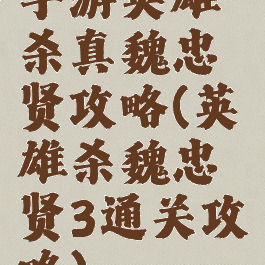 手游英雄
杀真魏忠
贤攻略(英
雄杀魏忠
贤3通关攻
略)